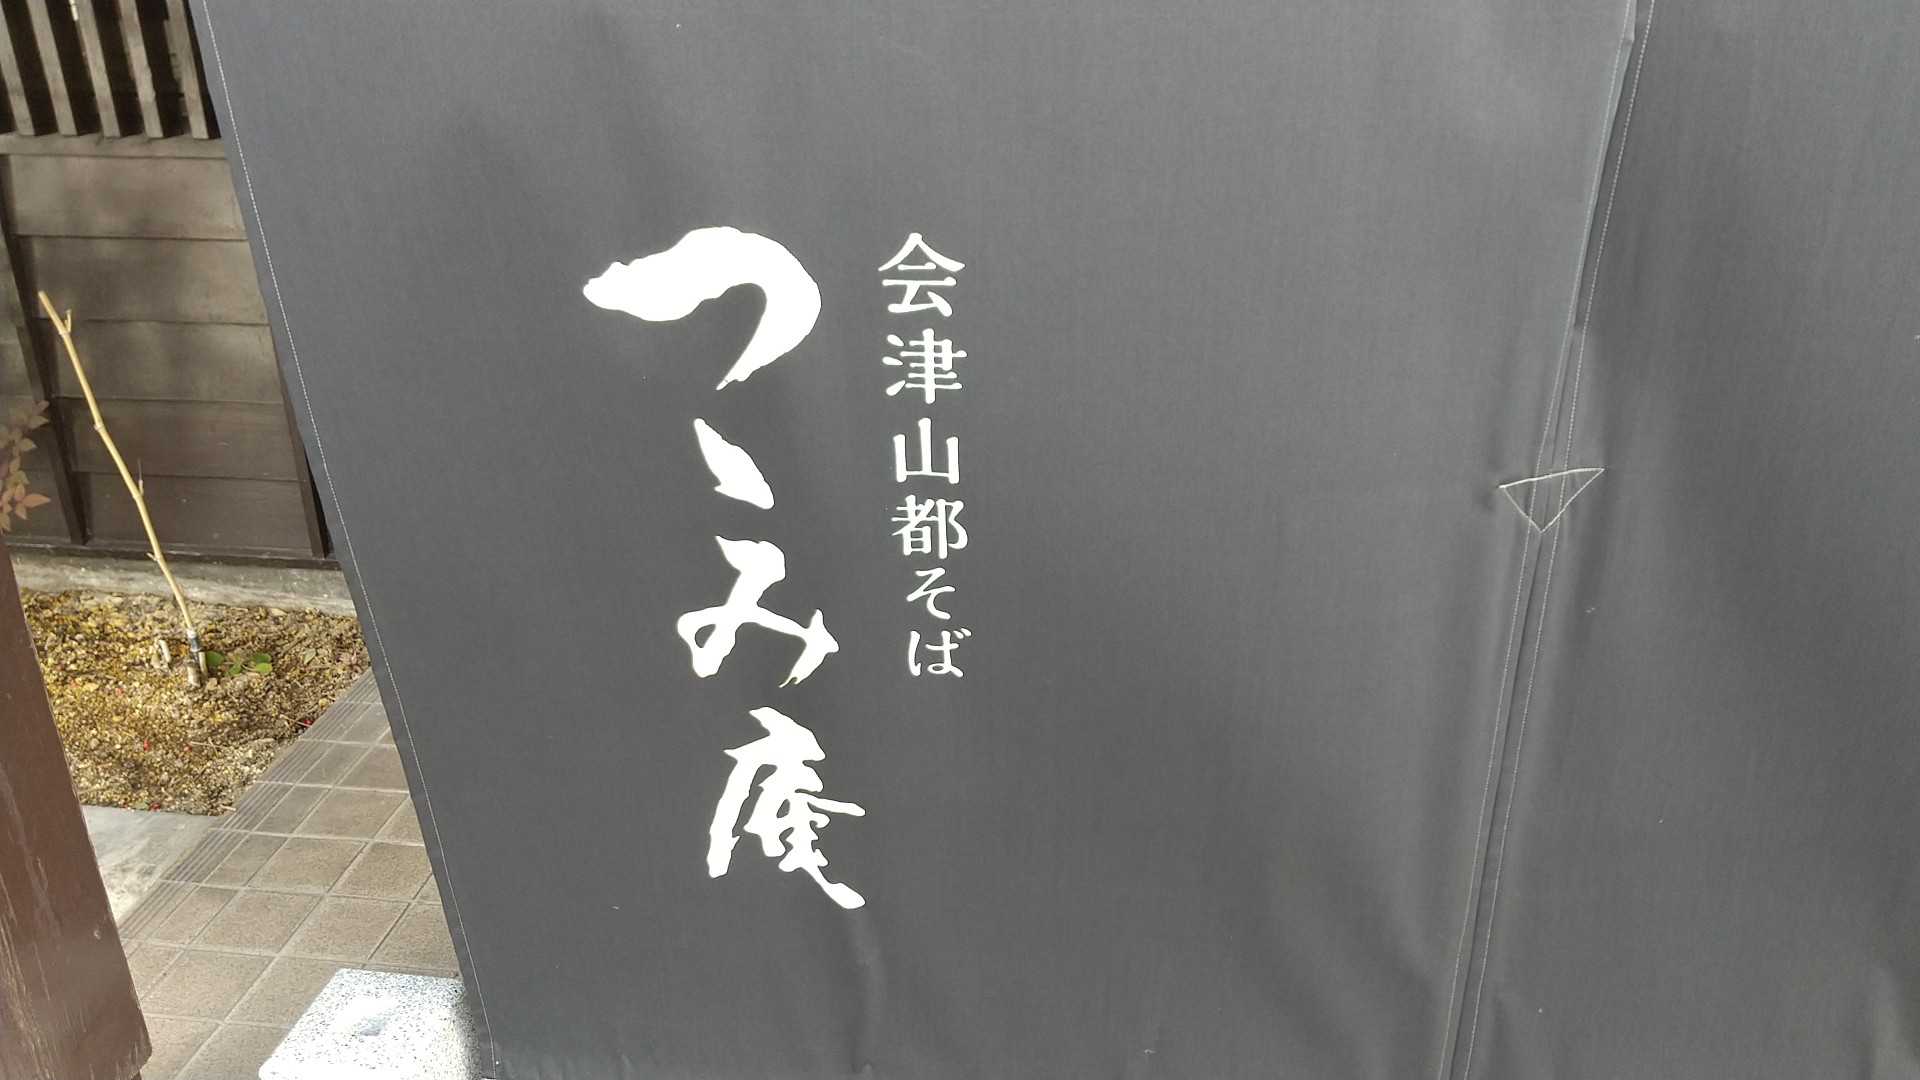 会津山都そば
つゝみ庵